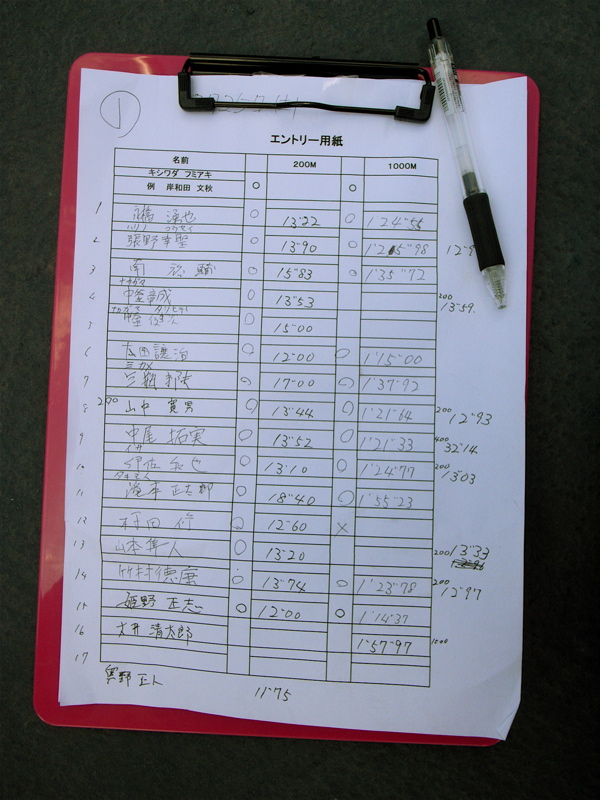 1
エントリー用紙
名前 200M 1000M
キシワダ フミアキ
例 岸和田 文秋 ○ ○
1 高橋 湧也 ○ 13"22 ○ 1'24"55
ハリノ コウセイ
2 張野幸聖 13"90 1'25"98
3 南 ○ 15"83 ○ 1'35"72
ナカガマ
4 ○ 13"53 200 13"59.
5 15"00
6 太田譲治 ○ 12"00 ○ 1'15"00
ミカメ
7 三瓶 ○ 17"00 ○ 1'37"92
8 270 山中 寛男 ○ 13"44 ○ 1'21"64 200 12"93
9 中尾 拓実 ○ 13"52 ○ 1'21"33 400 32"14
イサ
10 伊佐 ○ 13"10 ○ 1'24"77 200 13"03
タキモト
11 滝本 正太郎 ○ 18"40 ○ 1'55"23
12 村田 ○ 12"60 ×
13 山本隼人 ○ 13"20 200 13"33
14 竹村徳康 ○ 13"74 ○ 1'23"78 200 12"97
15 姫野 正志 ○ 12"00 ○ 1'14"37
16 大井 清太郎 1'57"97
17
奥野 正人 11"75